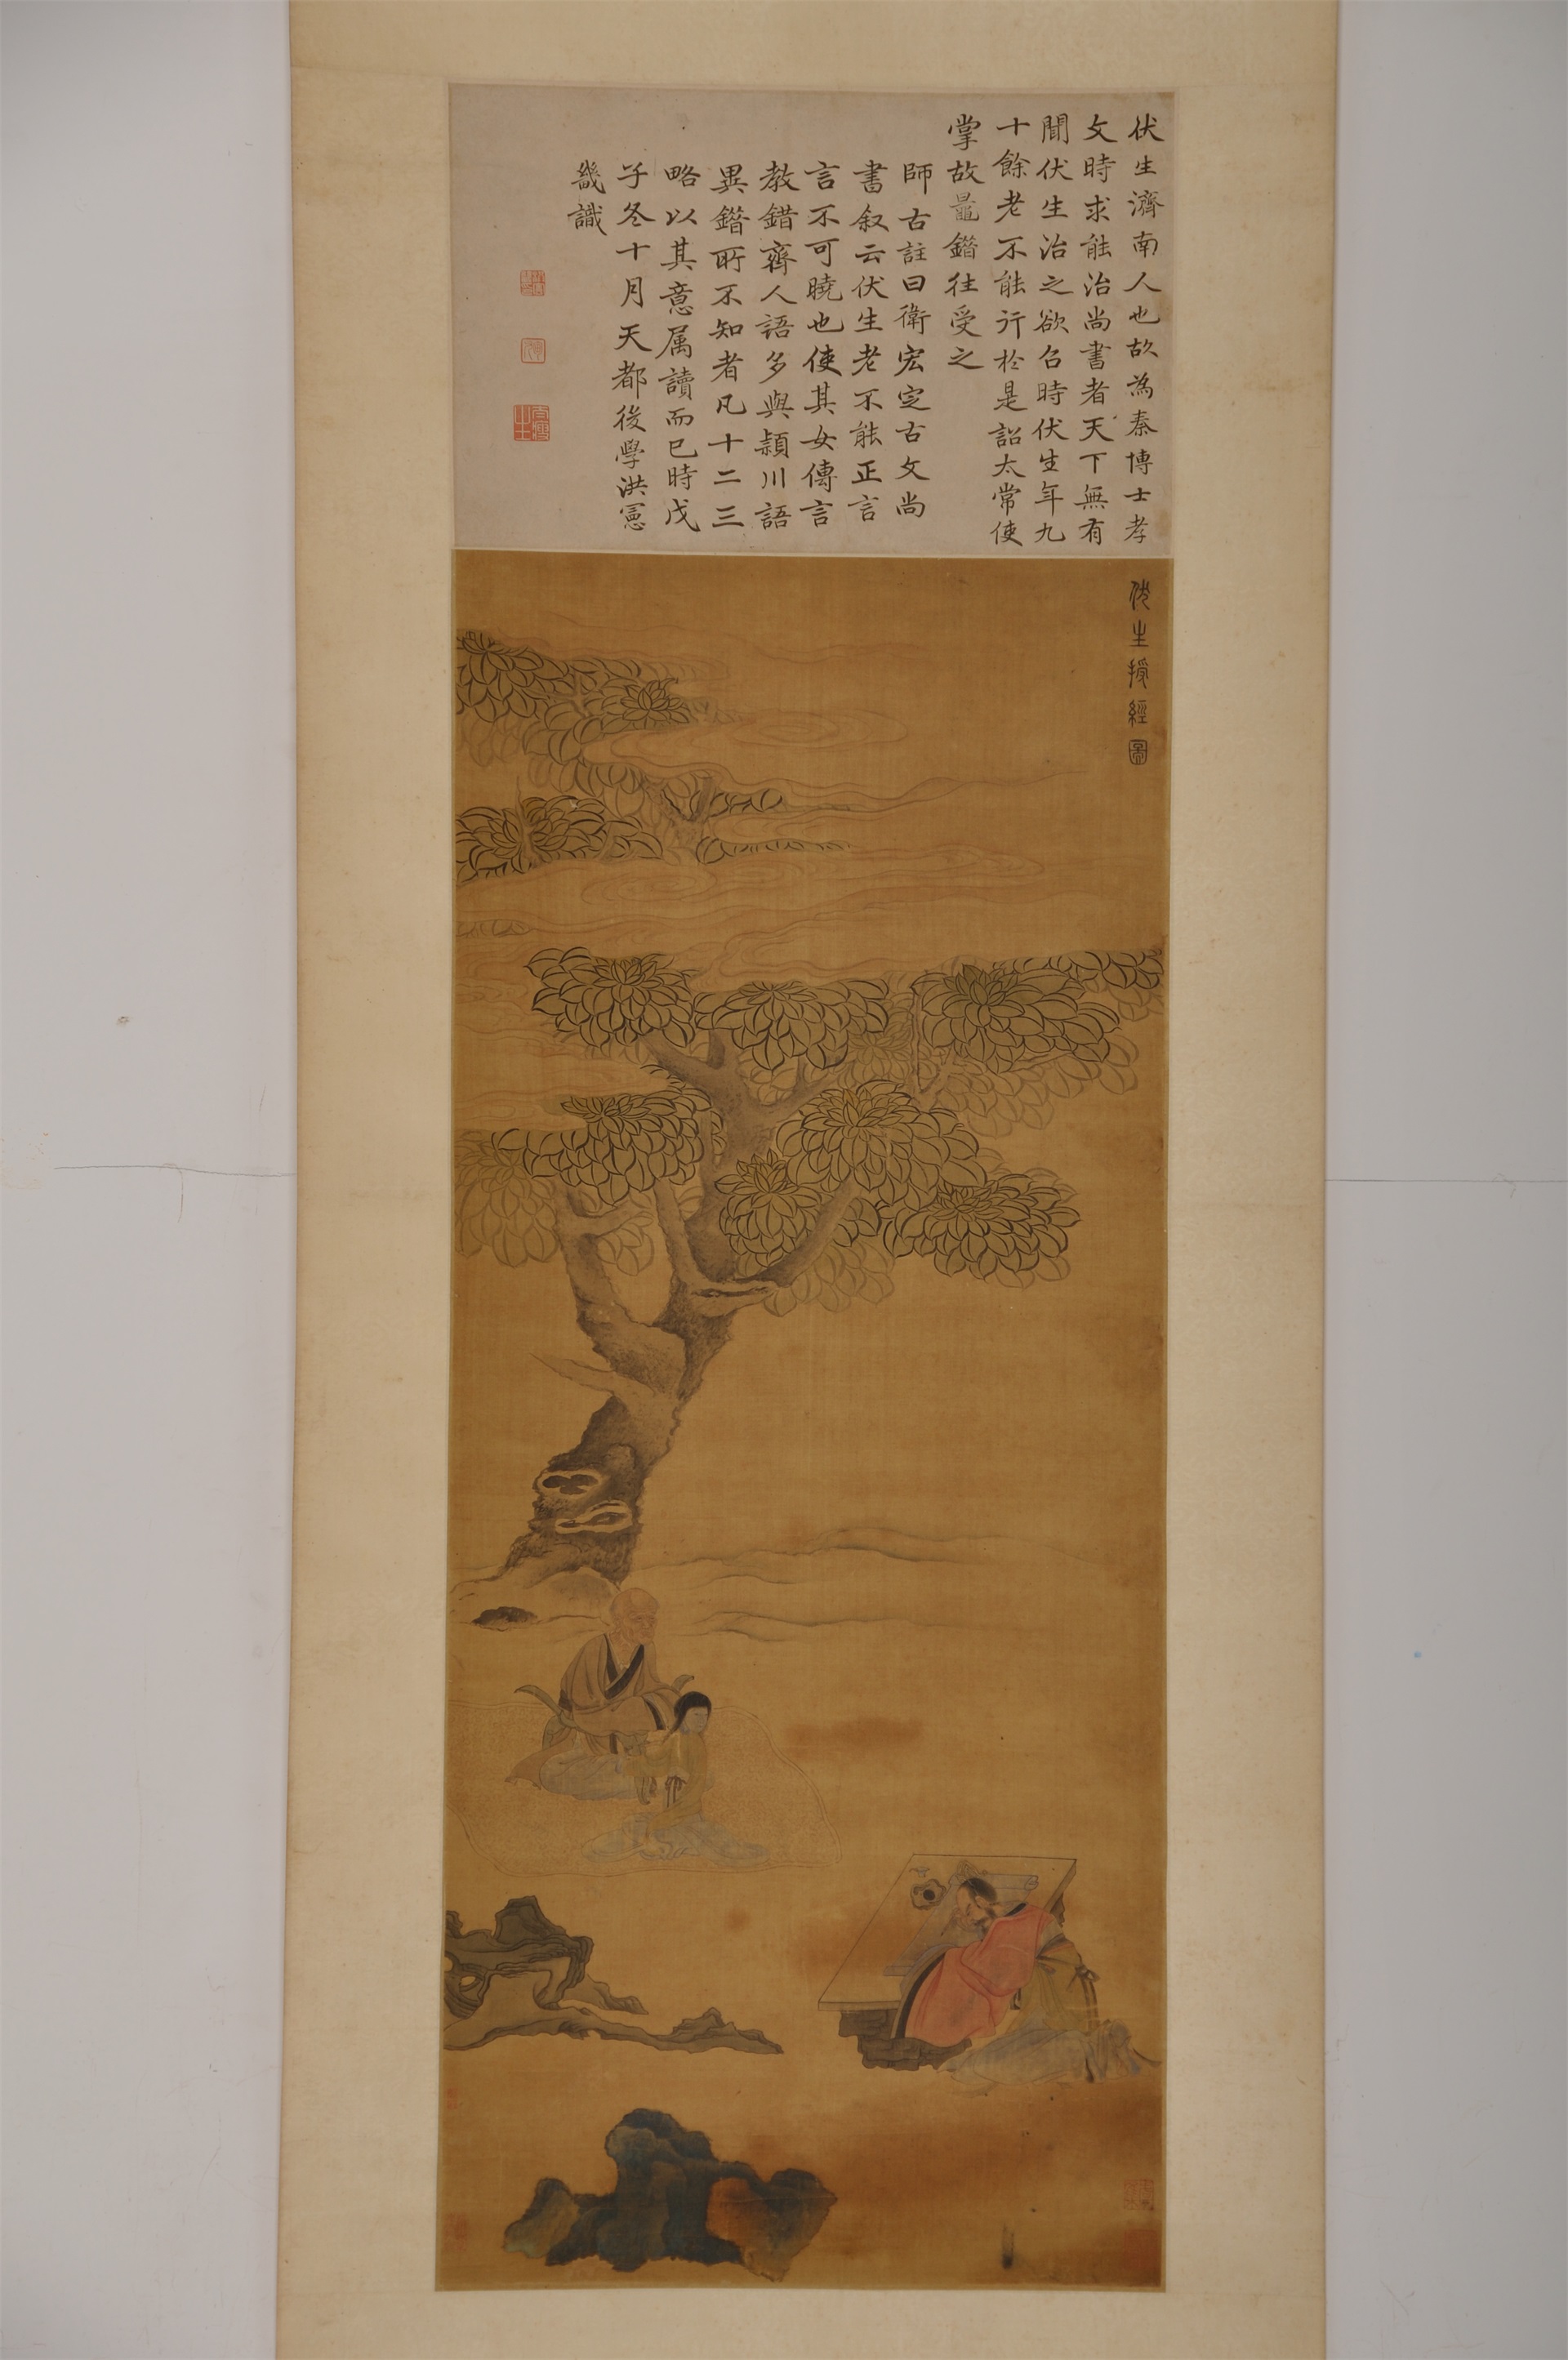 伏生濟南人也故為秦博士孝
文時求能治尚書者天下無有
聞伏生治之欲召時伏生年九
十餘老不能行於是詔太常使
掌故鼂錯往受之
師古註曰衛宏定古文尚
書叙云伏生老不能正言
言不可曉也使其女傳言
教錯齊人語多與潁川語
異錯所不知者凡十二三
略以其意属讀而已時戊
子冬十月天都後學洪憲
識
伏生授經圖